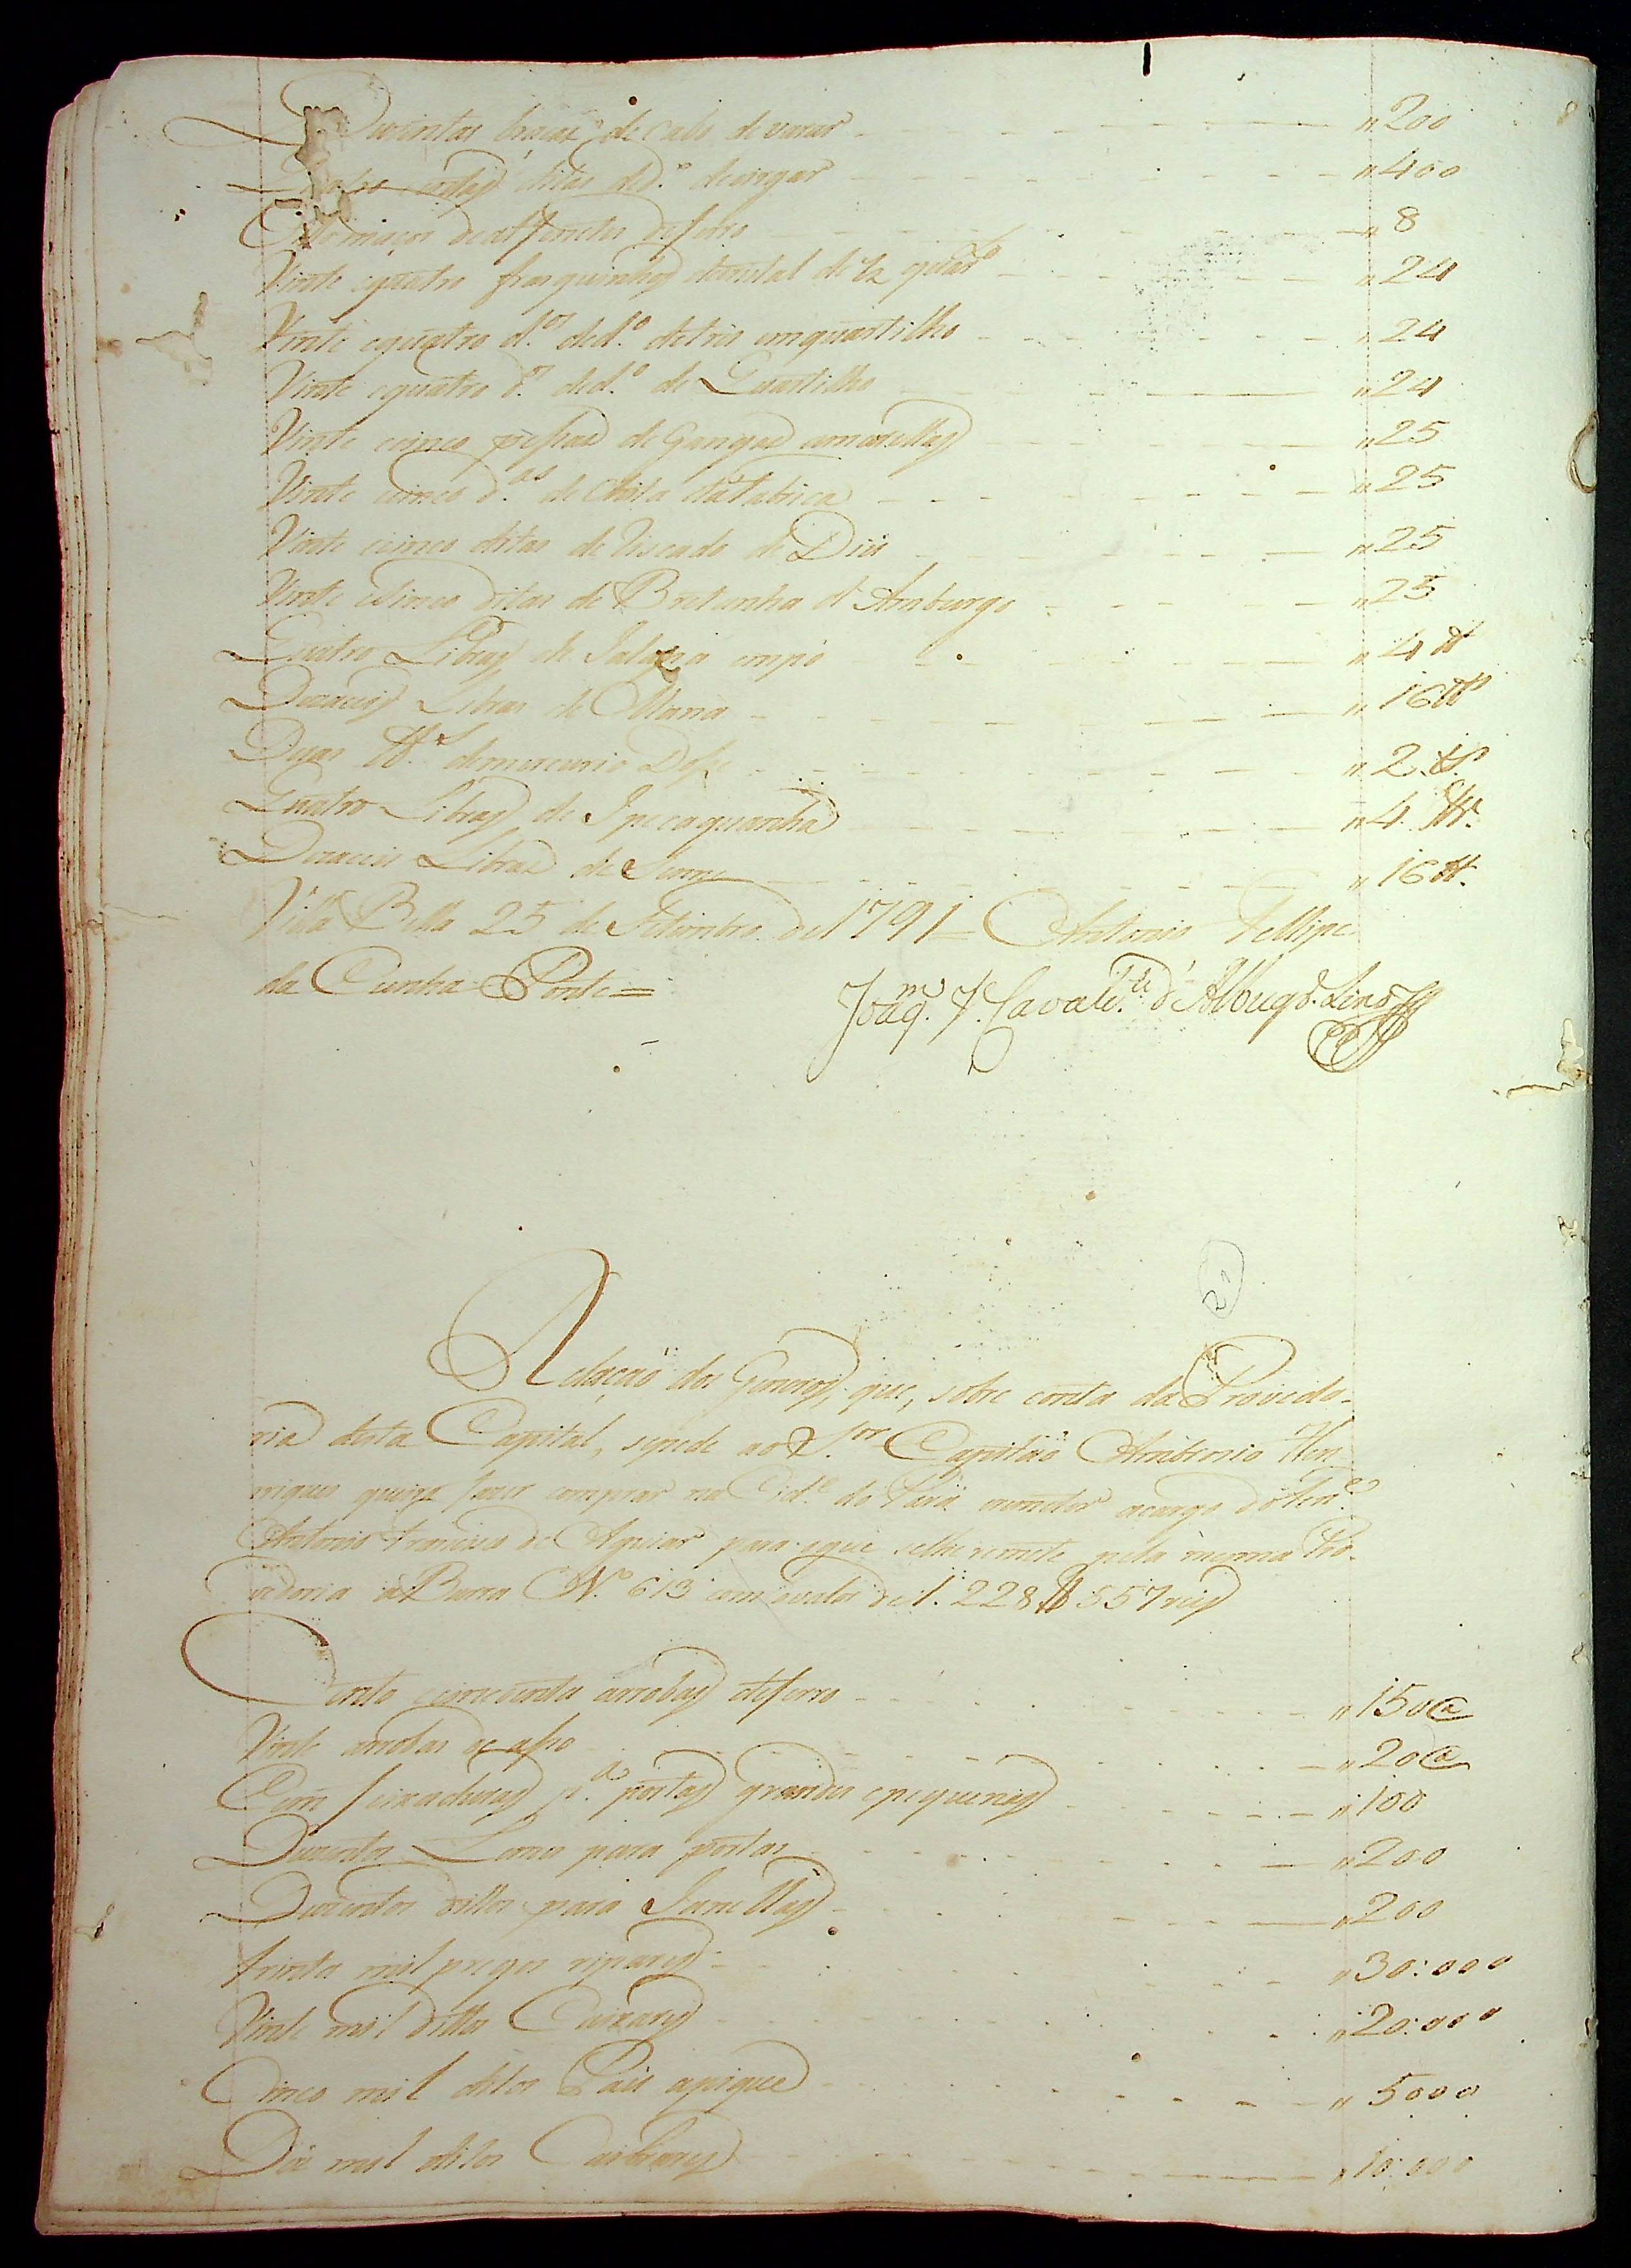 Duzentas braças de Cabo de varar "200
ditas de d.º de singar "400
Oito maços de alfenetes de ferro "8
Vinte equatro frasquinhos decristal de ½ quart.º "24
Vinte equatro d.ºs ded.º detres emquartilho "24
Vinte equatro d.ºs ded.º de Quartilho "24
Vinte ecinco pessas de Gangas amarellas "25
Vinte ecinco d.as de Chita dafabrica "25
Vinte ecinco ditas de Riscado de Dio "25
Vinte ecinco ditas de Bretanha d'Amburgo "25
Quatro Libras de Jalapa empó "4 ℔
Dezaceis Libras de Manà "16 ℔s
Duas ℔s demercurio Dose "2 ℔s
Quatro Libras de Ipecaquanha "4 ℔s
Dezaceis Libras de Senne "16 ℔
Villa Bella 25 de Setembro de 1791 = Antonio Fellipe
da Cunha Ponte =
Joaq.m J.e Cavalc.te d'Albuq.e Lins
2
Relação dos Generos, que, sobre conta da Provedo-
ria desta Capital, sepede ao S.or Capitão Ambrosio Hen-
riques queira fazer comprar na Cid.e do Pará eremeter acargo do Ten.e
Antonio Francisco de Aguiar para oque selhe remete pela mesma Pro-
vedoria a Barra N.º 613 com ovalor de 1.228$557 reis
Cento ecincoenta arrobas deferro "150@
Vinte arrobas de asso "20@
Cem feixaduras p.a portas grandes epequenas "100
Duzentos Lemes para portas "200
Duzentos dittos para Janellas "200
trinta mil pregos ripares "30:000
Vinte mil dittos Caixares "20:000
Cinco mil ditos Páis apique "5000
Dés mil ditos Caibraes "10:000